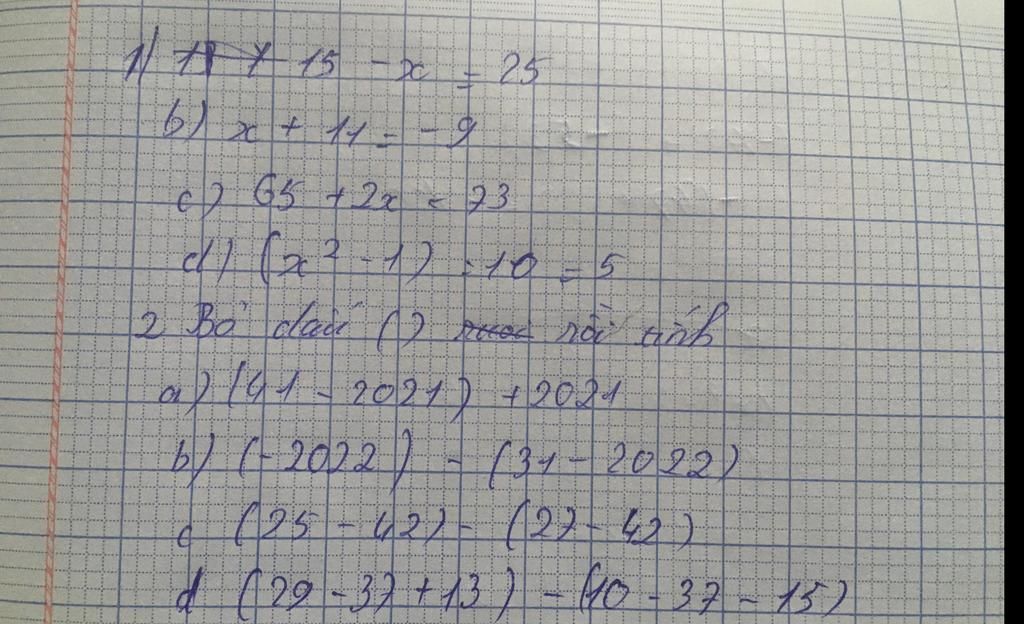 1) 15 - x = 25
b) x + 11 = - 9
c) 65 + 2x = 73
d) (x² - 1) : 10 = 5
2 Bỏ dấu () rồi tính
a) (41 - 2021) + 2021
b) (- 2022) - (31 - 2022)
c (25 - 42) - (27 - 42)
d (29 - 37 + 13) - (10 - 37 - 15)